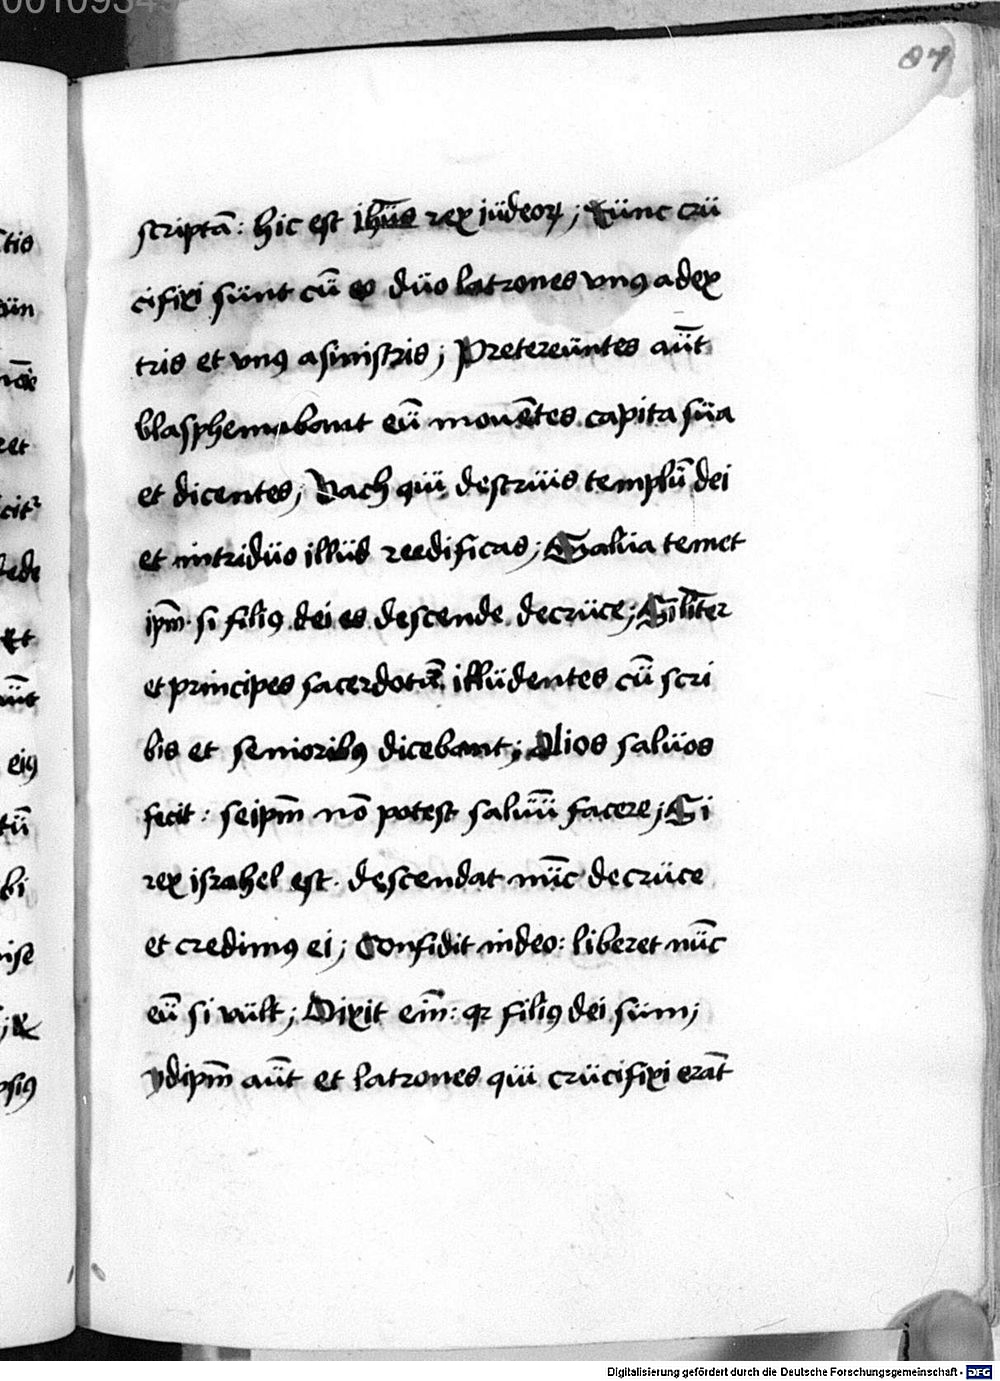 87
scriptā: hic est ihūs rex iudeoꝝ; Tunc cru
cifixi sunt cū eo duo latrones vnꝰ adex
tris et vnꝰ asinistris; Pretereuntes aūt
blasphemabant eū mouētes capita sua
et dicentes; Vach qui destruis templū dei
et intriduo illud reedificas; Salua temet
ip̄m. si filiꝰ dei es descende decruce; Sil̄iter
et principes sacerdotū illudentes cū scri
bis et senioribꝰ dicebant; Alios saluos
fecit: seip̄m nō potest saluū facere; Si
rex israhel est. descendat nūc decruce
et credimꝰ ei; Confidit indeo: liberet nūc
eū si vult; Dixit eī̄m: qꝛ filiꝰ dei sum;
Idip̄m aūt et latrones qui crucifixi erāt
Digitalisierung gefördert durch die Deutsche Forschungsgemeinschaft - DFG